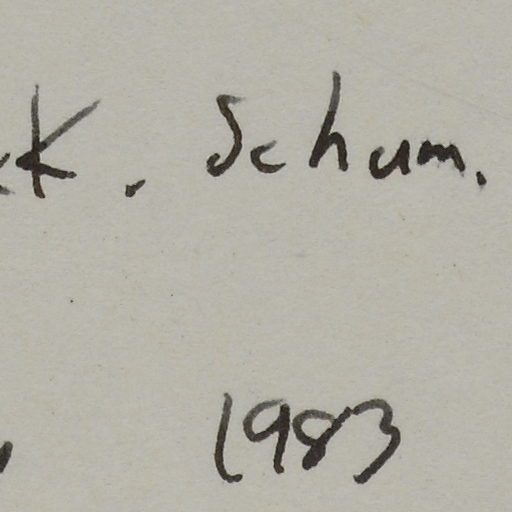 K. Schum.
1983